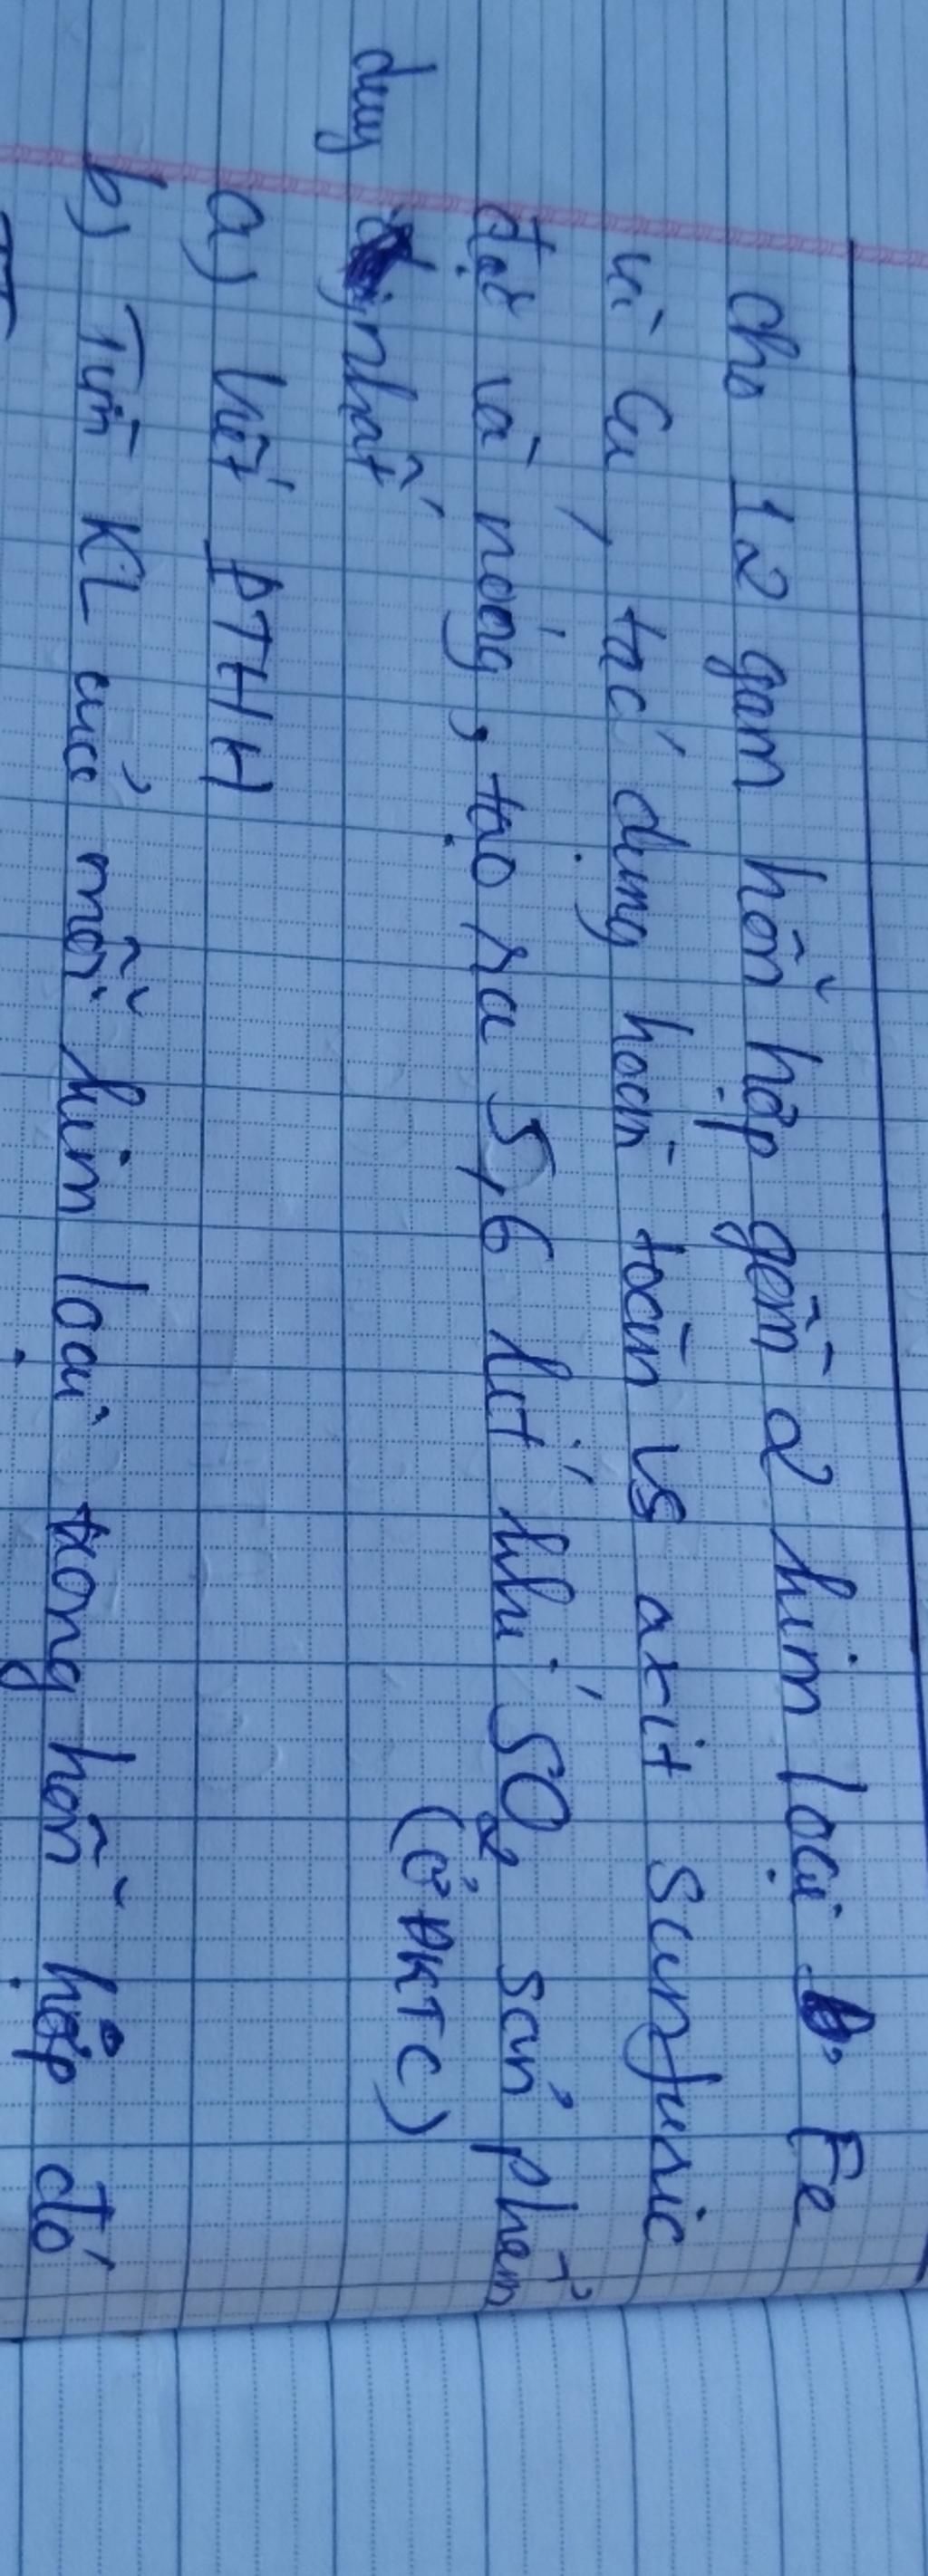 Cho 12 gam hỗn hợp gồm 2 kim loại Fe
và Cu, tác dụng hoàn toàn vs axit Sunfuric
đặc và nóng, tạo ra 5,6 lít khí SO2 sản phẩm
duy nhất (ở ĐKTC)
a) Viết PTHH
b) Tính KL của mỗi kim loại trong hỗn hợp đó